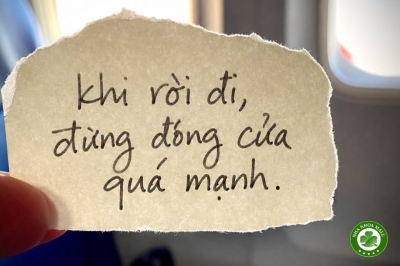 khi rời đi,
đừng đóng cửa
quá mạnh.